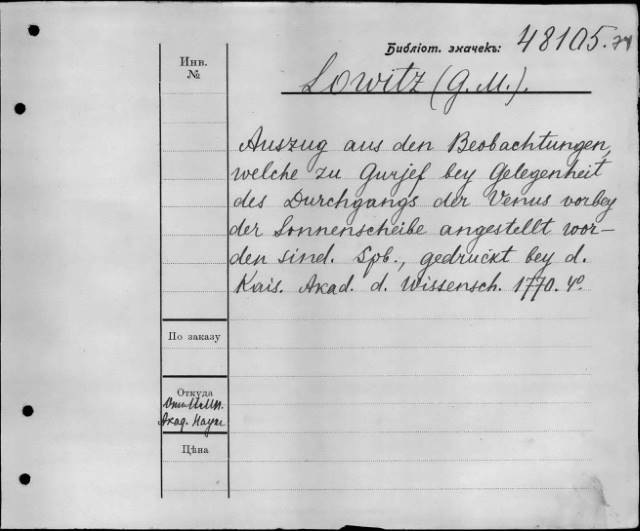 Библіот. значекъ: 48105.
Инв.
№
Lowitz (G. M.).
Auszug aus den Beobachtungen,
welche zu Gurjef bey Gelegenheit
des Durchgangs der Venus vorbey
der Sonnenscheibe angestellt wor-
den sind. Spb., gedruckt bey d.
Kais. Akad. d. Wissensch. 1770. 4º.
По заказу
Откуда
Отъ Имп.
Акад. Наукъ
Цѣна